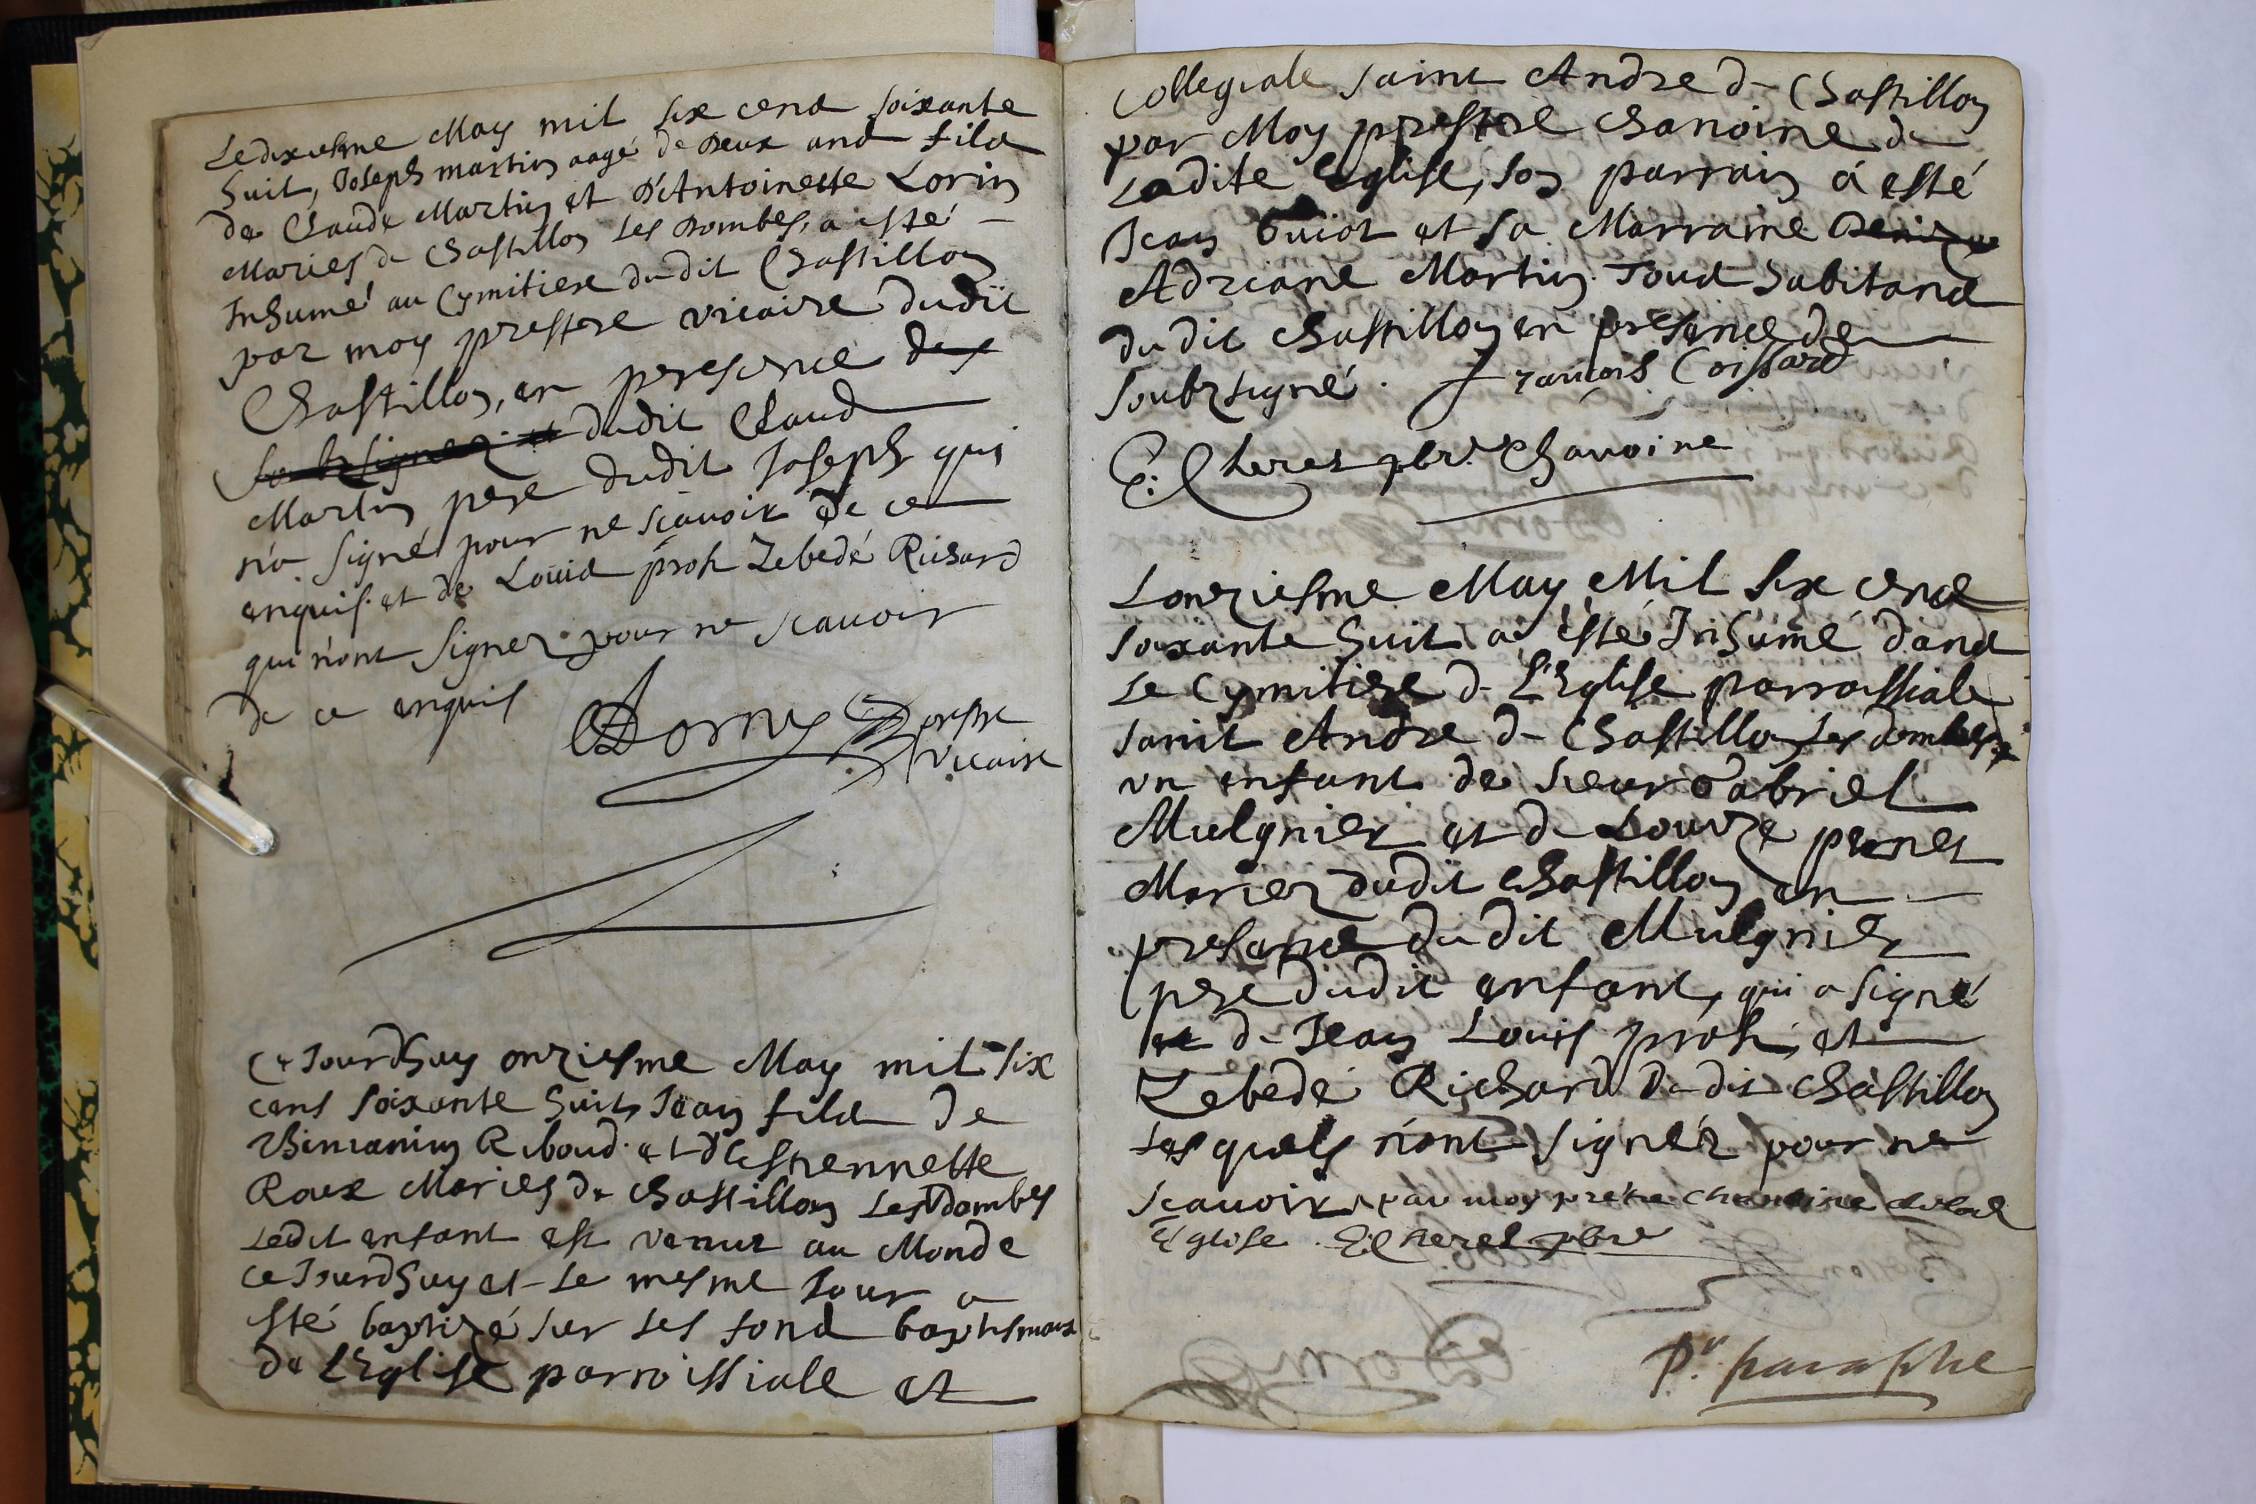 Le dixiesme May mil six cens soixante
huit, Joseph martin aagé de Deux ans fils
de Claude Martin et D'Antoinette Lorin
Mariés de Chastillon les Dombes, a esté
Inhumé au Cymitiere dudit Chastillon
par moy prestre vicaire dudit
Chastillon, en presence des
soubsignez et dudit Claud
Martin pere dudit Joseph qui
n'a signé pour ne scavoir de ce
enquis. et de Louis prost Zebedé Richard
qui n'ont signer pour ne scavoir
de ce enquis
Dorny
Vicaire
Ce Jourdhuy onziesme May mil six
cens soixante huit, Jean fils de
Binianin Riboud et d'Estiennette
Roux Mariés de Chastillon Les Dombes
Ledit enfant est venut au Monde
ce Jourdhuy et le mesme Jour a
esté baptizé sur les fond baptismaux
de L'Eglise parroissiale et
Collegiale saint Andre de Chastillon
par Moy prestre chanoine de
Ladite Eglise, son parrain á esté
Jean Guiot et sa Marraine Denize
Adriane Martin. Tous habitans
du dit Chastillon en presence de
soubzsigné. francois Coissard
E. Cheret pbr. Chanoine
Lonziesme May Mil six cens
soixante huit a esté Inhumé dans
Le Cymitiere de L'Eglise parroissiale
saint Andre de Chastillon les dombes
un enfant de sieur Gabriel
Mulgnier et de Louyze pernet
Mariez dudit Chastillon en
presance du dit Mulgnier
pere dudit enfant, qui a signé
et de Jean Louis prost, et
Zebedé Richard dudit Chastillon
Lesquels n'ont signéz pour ne
scavoir, par moy pretre chanoine de lad
Eglise. E Cheret pbre
Pr. paraphe